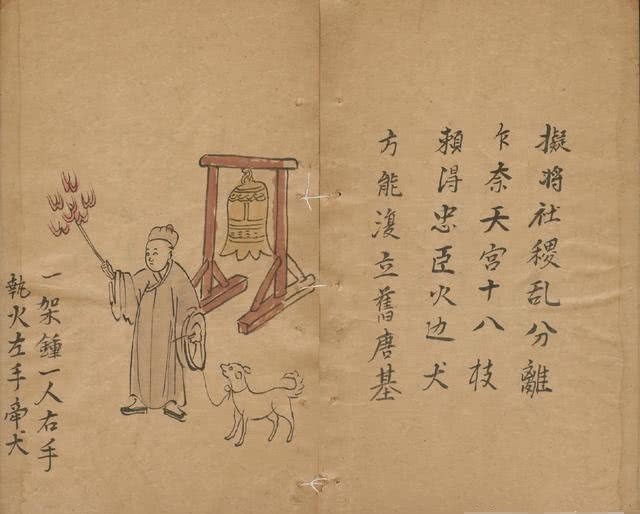 擬将社稷乱分離
乍奈天宮十八枝
頼淂忠臣火边犬
方能復立舊唐基
一架鍾一人右手
執火左手帝犬